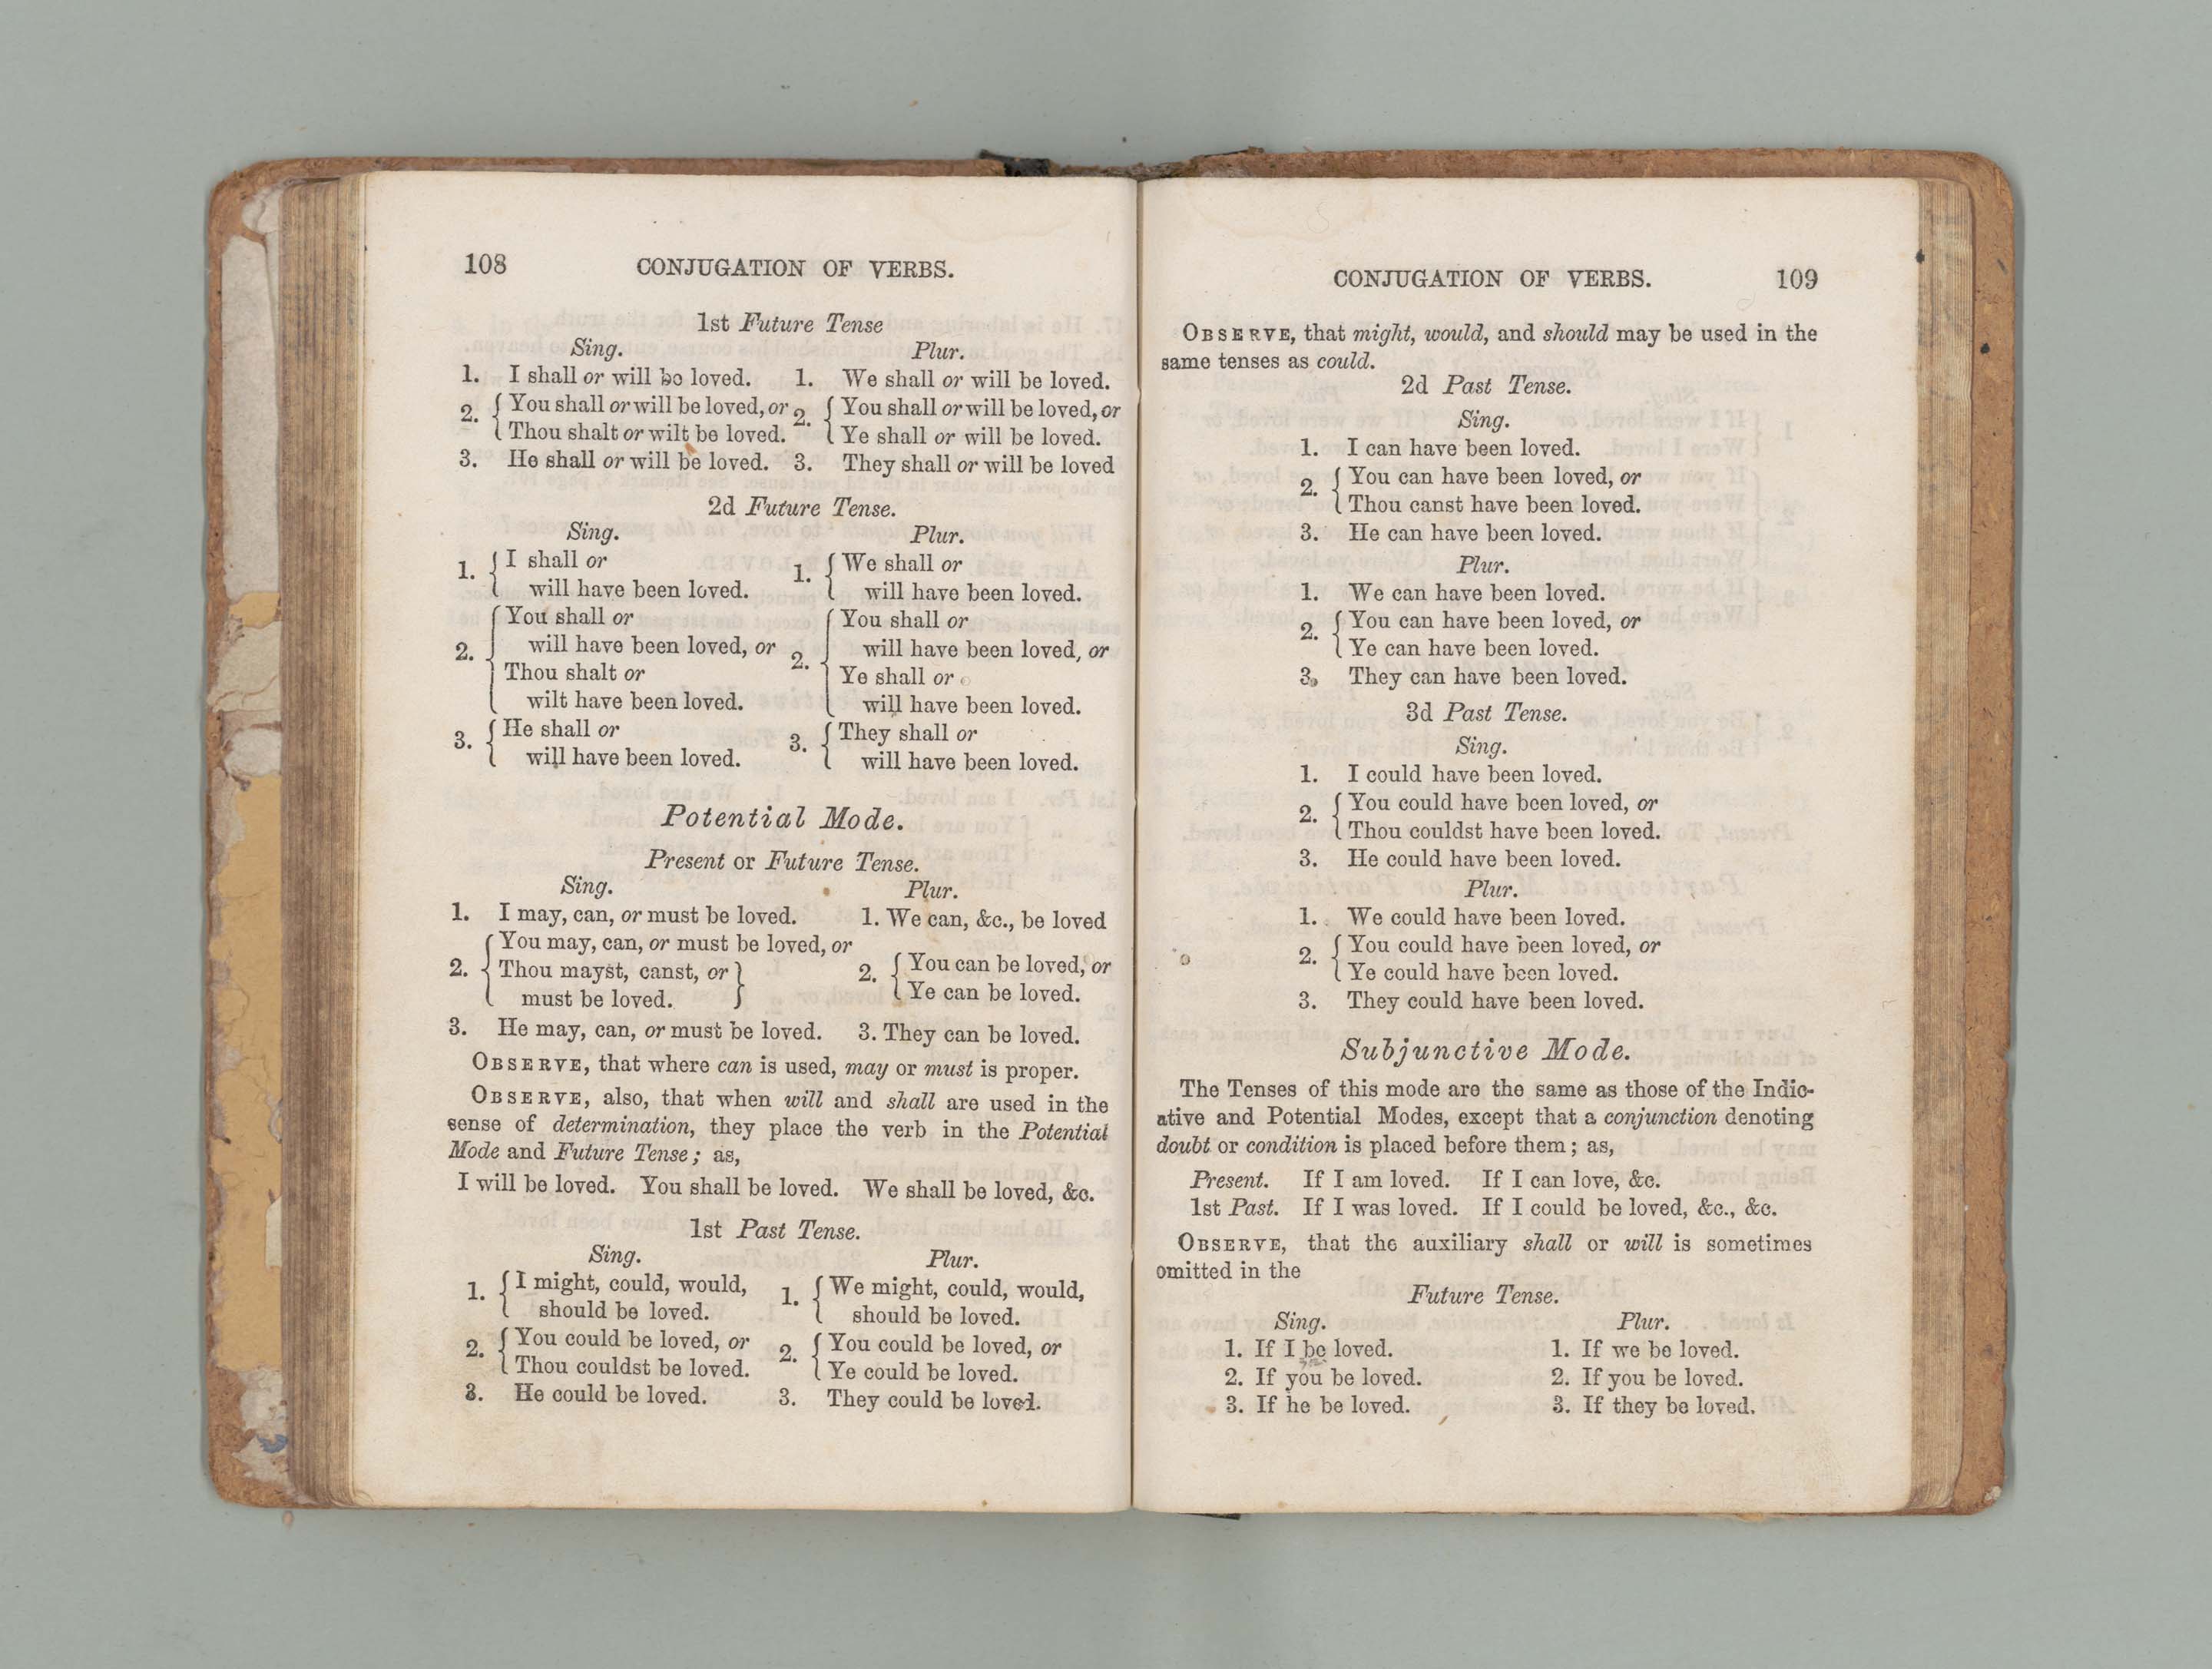 108 CONJUGATION OF VERBS.
1st Future Tense
Sing. Plur.
1. I shall or will be loved. 1. We shall or will be loved.
2. { You shall or will be loved, or 2. { You shall or will be loved, or
Thou shalt or wilt be loved. Ye shall or will be loved.
3. He shall or will be loved. 3. They shall or will be loved
2d Future Tense.
Sing. Plur.
1. { I shall or 1. { We shall or
will have been loved. will have been loved.
2. { You shall or 2. { You shall or
will have been loved, or will have been loved, or
Thou shalt or Ye shall or
wilt have been loved. will have been loved.
3. { He shall or 3. { They shall or
will have been loved. will have been loved.
Potential Mode.
Present or Future Tense.
Sing. Plur.
1. I may, can, or must be loved. 1. We can, &c., be loved
2. { You may, can, or must be loved, or 2. { You can be loved, or
Thou mayst, canst, or } Ye can be loved.
must be loved.
3. He may, can, or must be loved. 3. They can be loved.
OBSERVE, that where can is used, may or must is proper.
OBSERVE, also, that when will and shall are used in the
sense of determination, they place the verb in the Potential
Mode and Future Tense; as,
I will be loved. You shall be loved. We shall be loved, &c.
1st Past Tense.
Sing. Plur.
1. { I might, could, would, 1. { We might, could, would,
should be loved. should be loved.
2. { You could be loved, or 2. { You could be loved, or
Thou couldst be loved. Ye could be loved.
3. He could be loved. 3. They could be loved.
CONJUGATION OF VERBS. 109
OBSERVE, that might, would, and should may be used in the
same tenses as could.
2d Past Tense.
Sing.
1. I can have been loved.
2. { You can have been loved, or
Thou canst have been loved.
3. He can have been loved.
Plur.
1. We can have been loved.
2. { You can have been loved, or
Ye can have been loved.
3. They can have been loved.
3d Past Tense.
Sing.
1. I could have been loved.
2. { You could have been loved, or
Thou couldst have been loved.
3. He could have been loved.
Plur.
1. We could have been loved.
2. { You could have been loved, or
Ye could have been loved.
3. They could have been loved.
Subjunctive Mode.
The Tenses of this mode are the same as those of the Indic-
ative and Potential Modes, except that a conjunction denoting
doubt or condition is placed before them; as,
Present. If I am loved. If I can love, &c.
1st Past. If I was loved. If I could be loved, &c., &c.
OBSERVE, that the auxiliary shall or will is sometimes
omitted in the
Future Tense.
Sing. Plur.
1. If I be loved. 1. If we be loved.
2. If you be loved. 2. If you be loved.
3. If he be loved. 3. If they be loved.